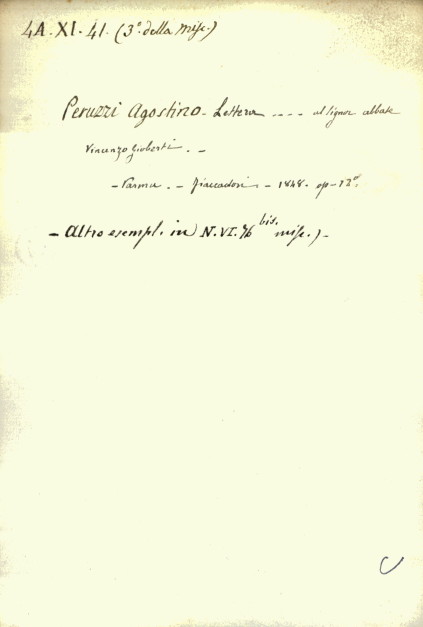 4A. XI. 41. (3º. della Misc.)
Peruzzi Agostino - Lettera ---- al signor abbate
Vincenzo Gioberti. -
- Parma. - Fiaccadori - 1848. op - 12º.
- Altro esempl. in N. VI. 76 bis. misc.) -